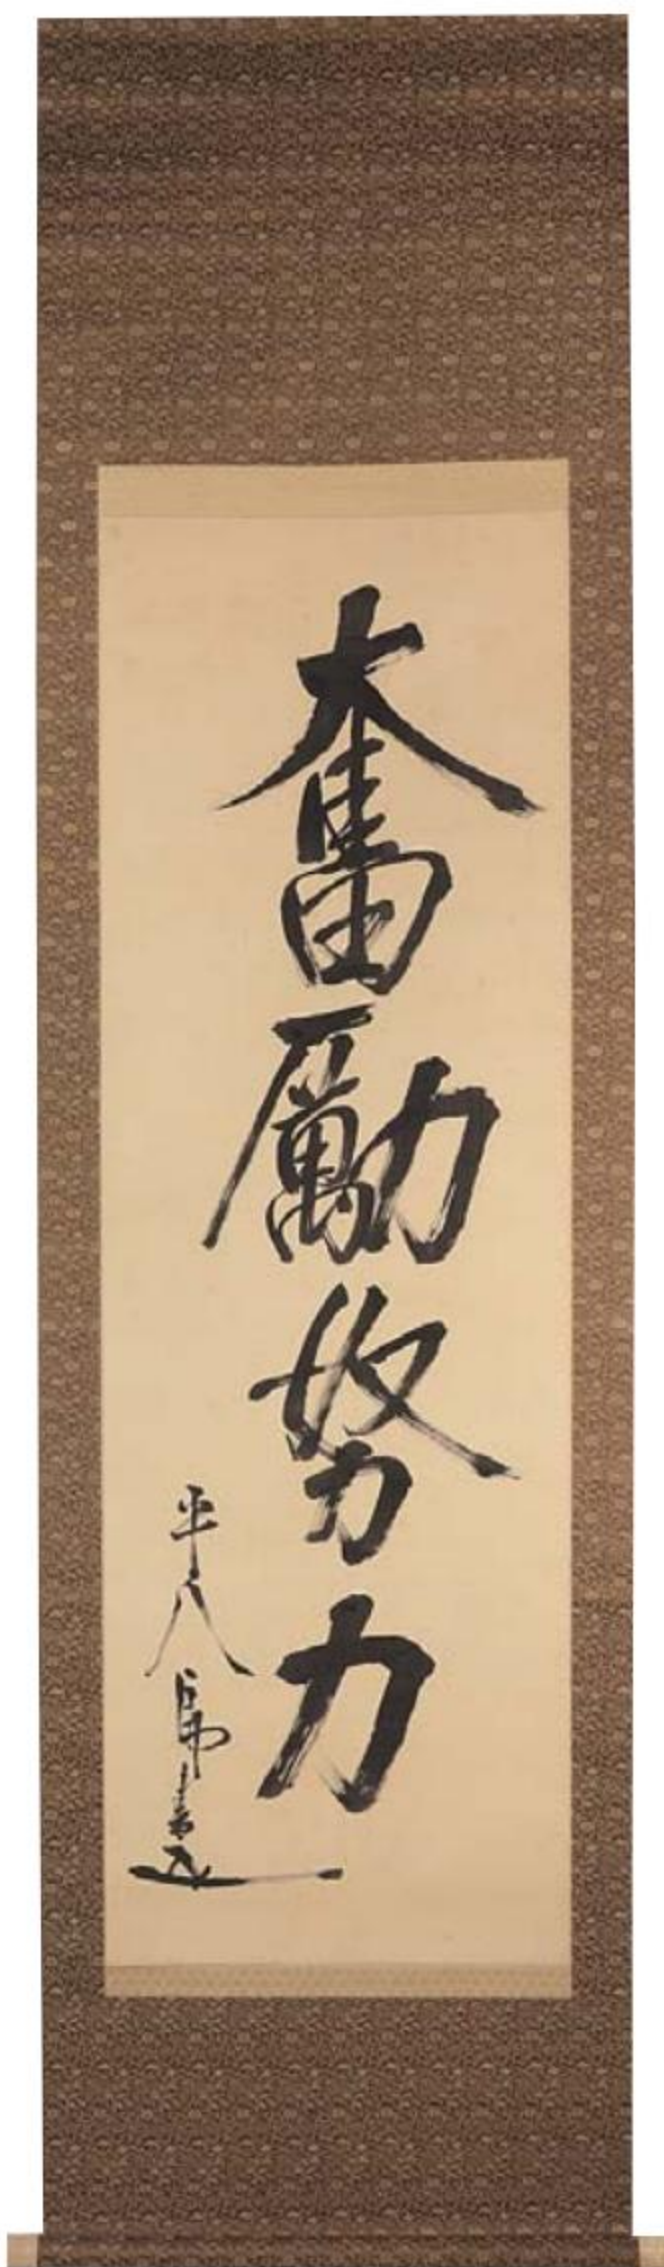 奮勵努力
平八郎書